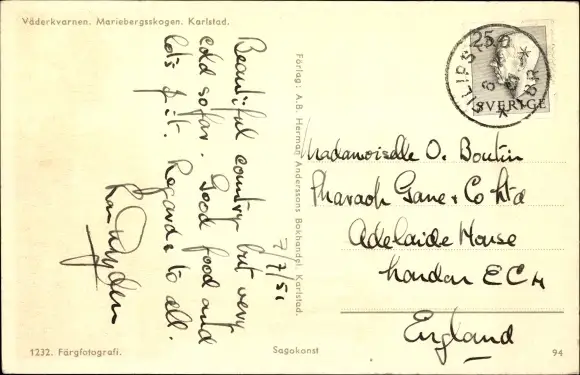 Väderkvarnen. Mariebergsskogen. Karlstad.
Beautiful country but very
cold so far. Good food and
lots of it. Regards to all.
7/7/51
Förlag: A.B. Herman Anderssons Bokhandel, Karlstad.
25
SVERIGE
Madamoiselle O. Boutin
Pharaoh Gane & Co Ltd
Adelaide House
London EC4
England
1232. Färgfotografi.
Sagokonst
94